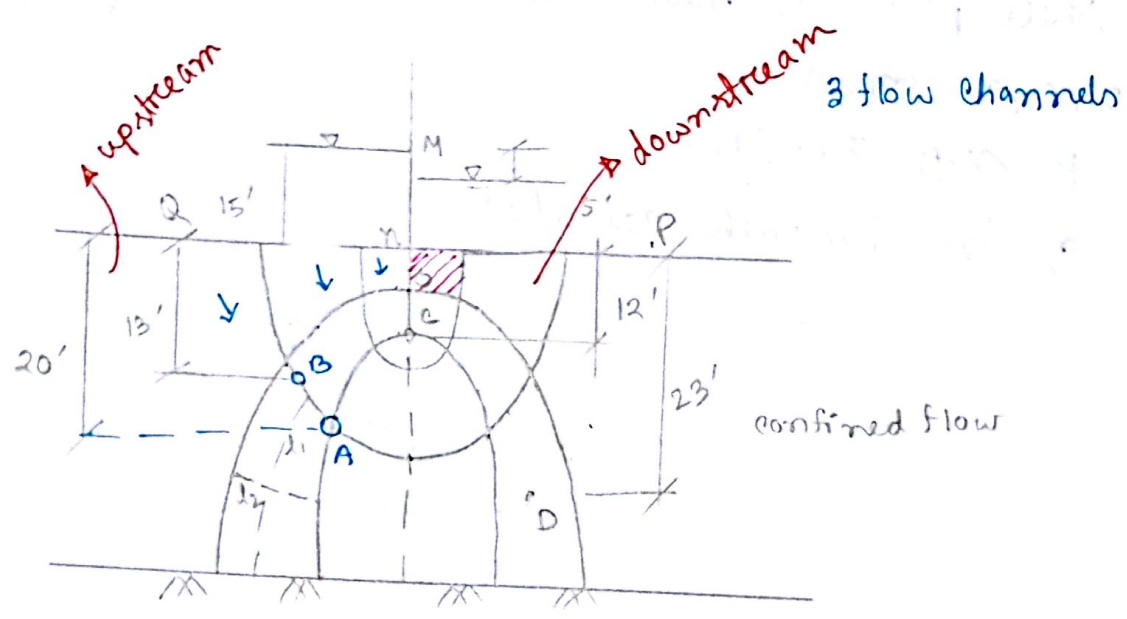 upstream
downstream
3 flow channels
M
Q
15'
5'
P
n
C
12'
13'
B
20'
23'
confined flow
l1
A
D